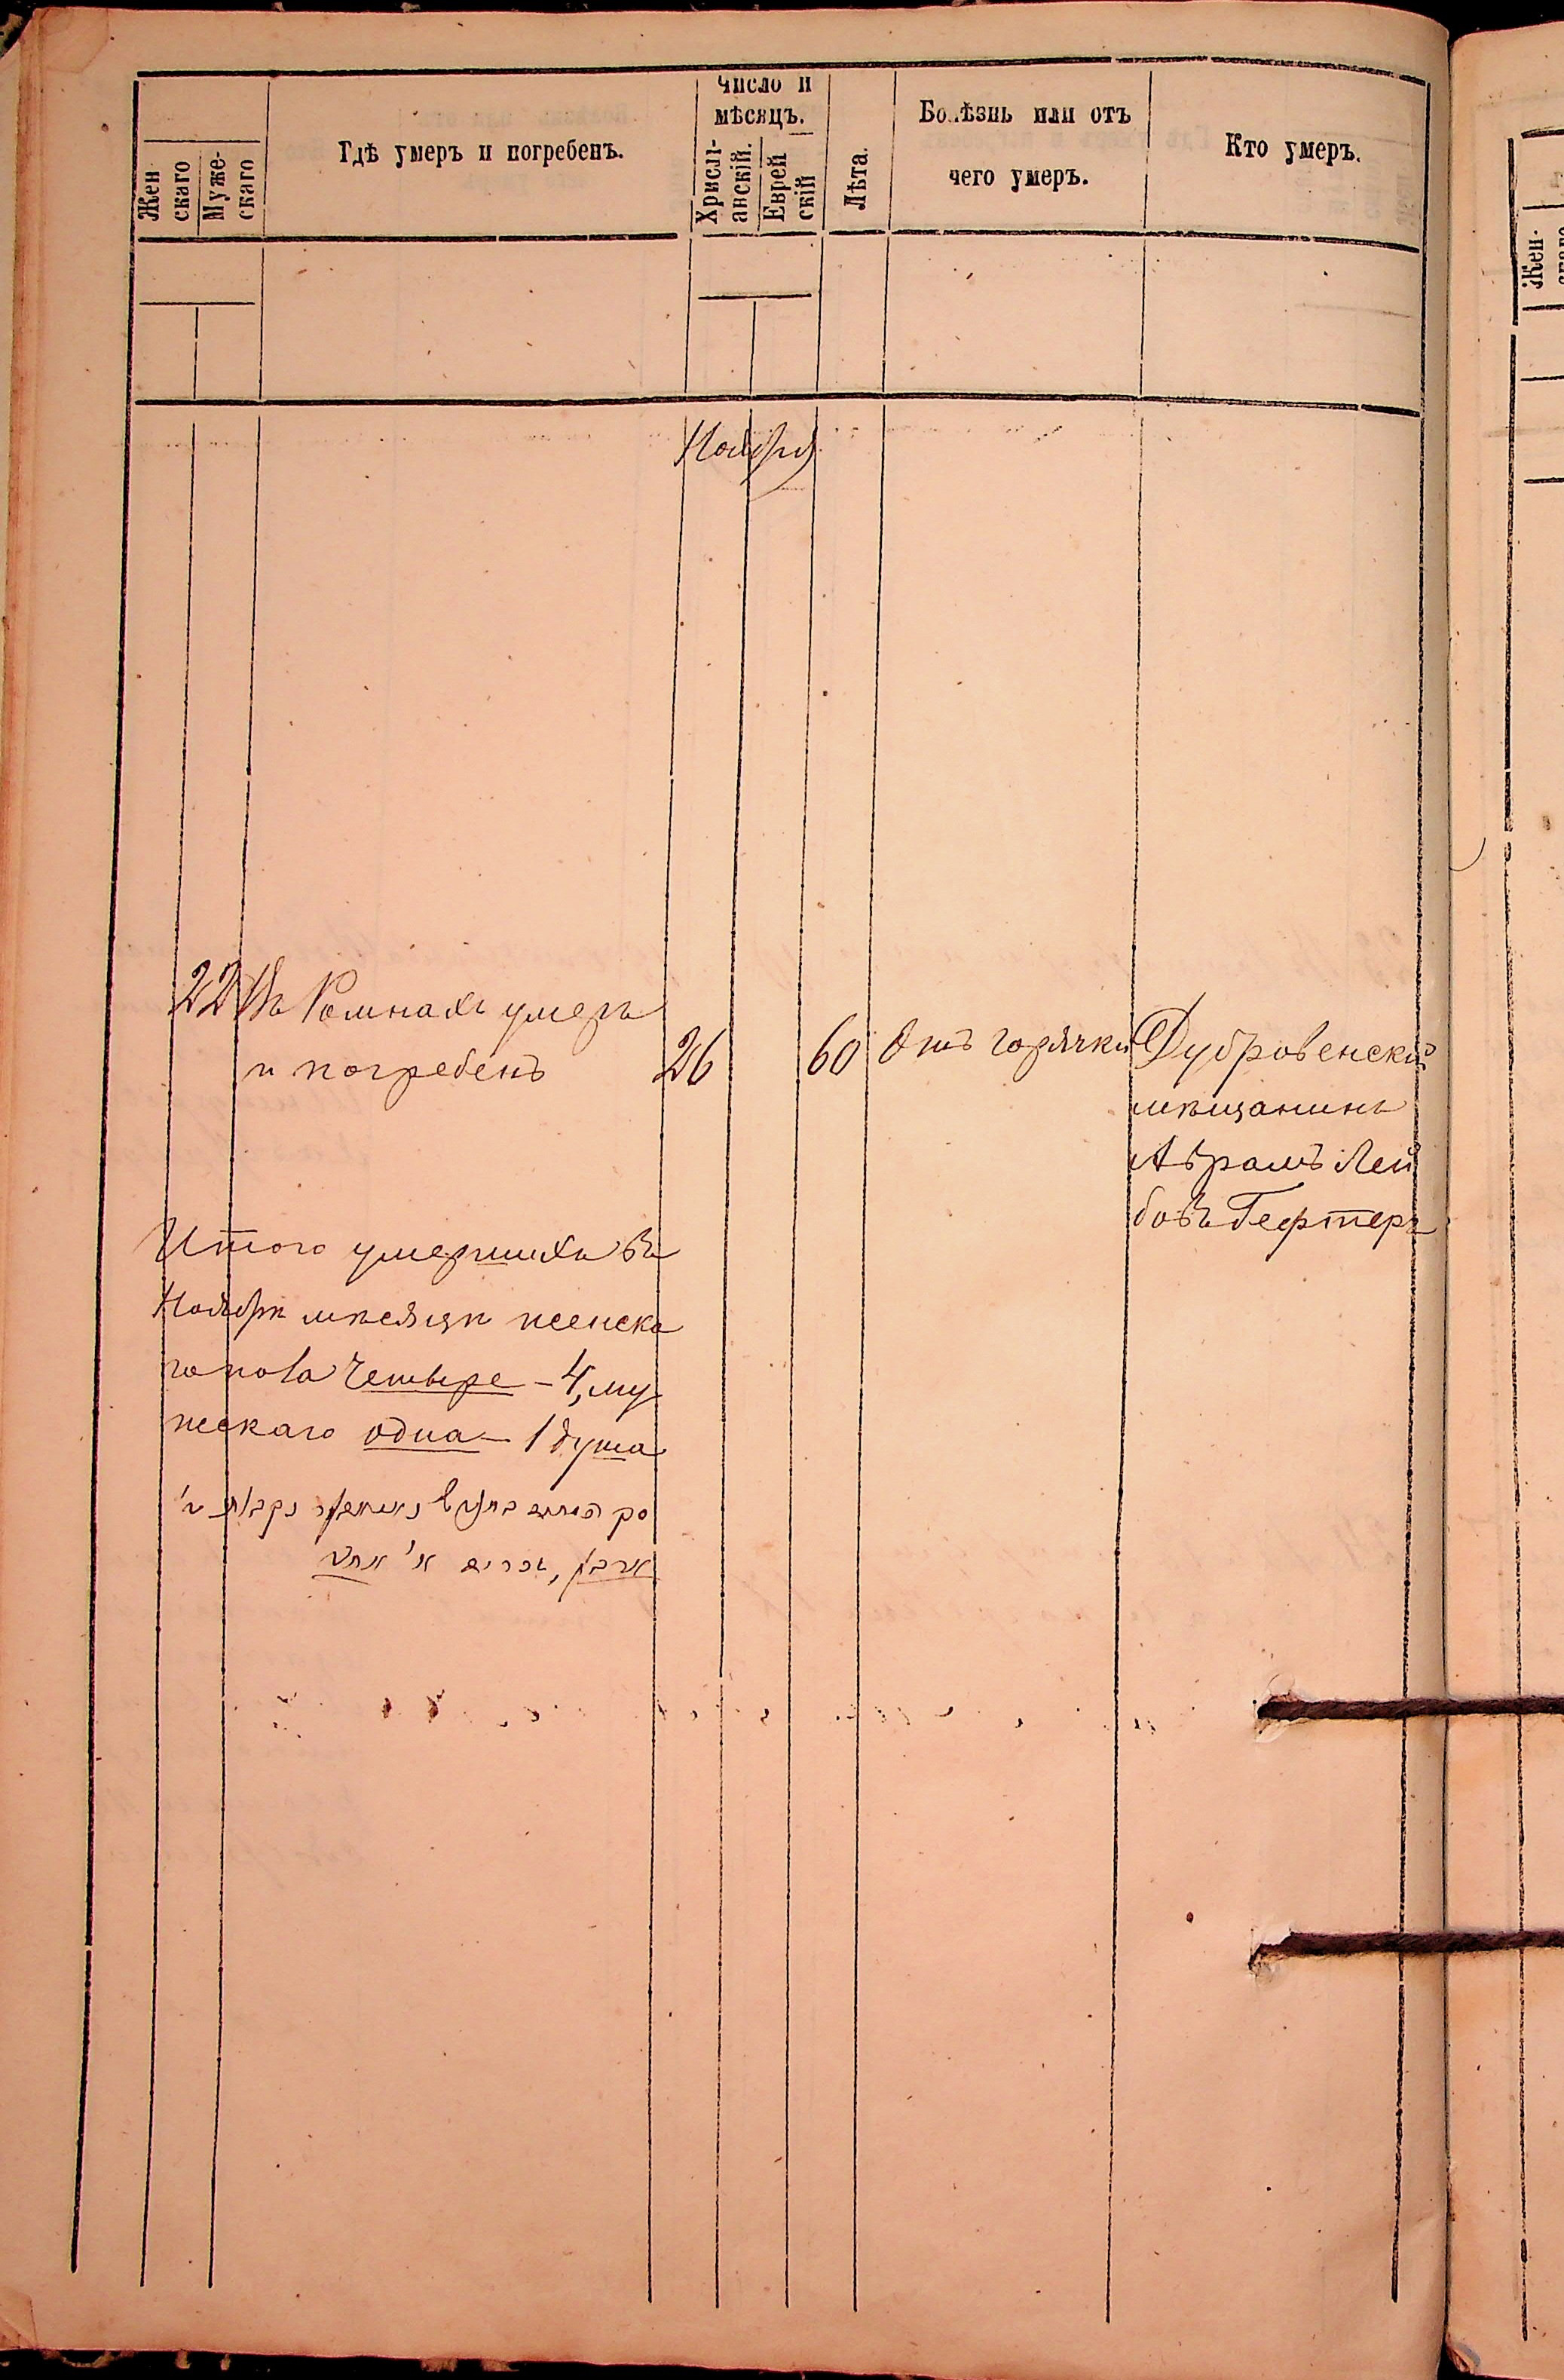 Число и
мѣсяцъ.
Жен
скаго
Муже-
скаго
Гдѣ умеръ и погребенъ.
Христі-
анскій.
Еврей
скій
Лѣта.
Болѣзнь или отъ
чего умеръ.
Кто умеръ.
Ноября
22 Въ Ромнахъ умеръ
и погребенъ
26
60
Отъ горячки
Дубровенскій
мѣщанинъ
Абрамъ Лей
бовъ Гефтеръ
Итого умершихъ въ
Ноябрѣ мѣсяцѣ женска
го пола Четыре - 4, му
жескаго одна - 1 душа
Жен-